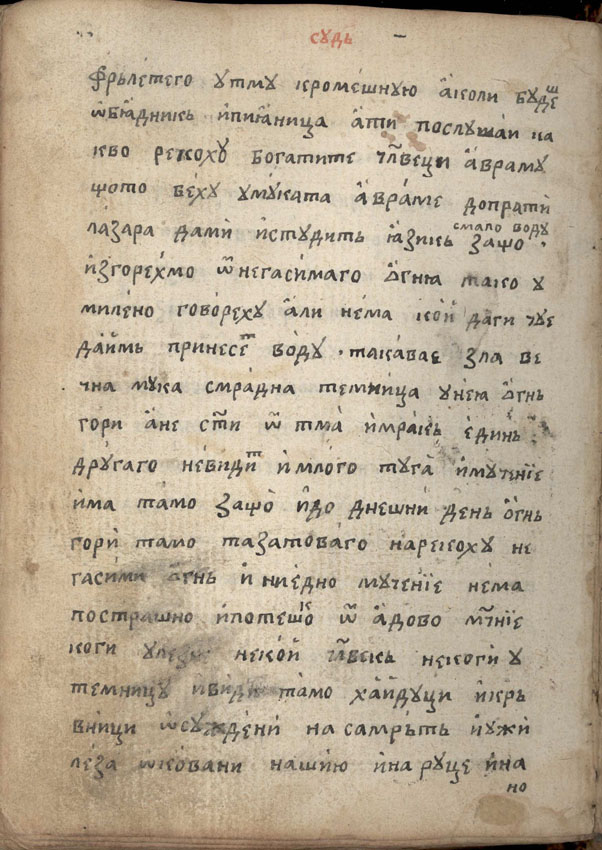 судь
фрьлетего у тму кромешную а́коли буде ш
ѡбꙗ́дникь и҆пиꙗ́ница а҆ти послушаи ка
кво рекоху богатите чл҃веци а҆враму
щото беху у мука́та а҆враме допрати
ла́зара дами и҆студить ꙗ҆зикь защо
смало воду
и҆згорехмо ѿ негасимаго ѻ҆гнꙗ тако у
милено гово́реху а҆ли нема кои даги чуе
даи҆мь принесет во́ду · такаваѐ зла ве
чна мука смра́дна темница у нею ѻ҆гнь
гори а҆не стⷡ҇и ѿ тма̀ и҆мракь е҆динь
дру́гаго невидит и҆ млого туга̀ и҆мучение
и҆ма та́мо защо̀ и҆до днешни день ѻ҆гнь
гори та́мо тазатова́го нарекоху не
гасими ѻ҆гнь и҆ ниедно мучение нема
пострашно и҆потешко ѿ а҆дово мⷱ҇ние
коги улезе неко́и чл҃векь некоги у
темницу и҆види та́мо хаи҆дуци и҆крь
вници ѡ҆сужде́ни на самрьть и҆ужи
ле́за ѡ҆ковани нашию и҆на руце и҆на
но